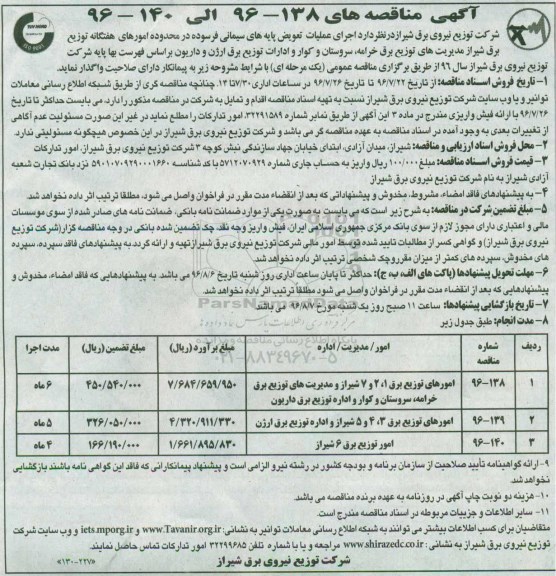 آگهی مناقصه های ۱۳۸-۹۶ الی ۱۴۰-۹۶
شرکت توزیع نیروی برق شیراز درنظردارد اجرای عملیات تعویض پایه های سیمانی فرسوده در محدوده امورهای هفتگانه توزیع
برق شیراز مدیریت های توزیع برق خرامه، سروستان و کوار و ادارات توزیع برق ارژن و داریون براساس فهرست بها پایه شرکت
توزیع نیروی برق شیراز سال ۹۶ از طریق برگزاری مناقصه عمومی (یک مرحله ای) با شرایط مشروحه زیر به پیمانکار دارای صلاحیت واگذار نماید.
۱- تاریخ فروش اسناد مناقصه: از تاریخ ۹۶/۷/۲۲ تا تاریخ ۹۶/۷/۲۶ در ساعات اداری ۷/۳۰ تا ۱۴. چنانچه مناقصه گری از طریق شبکه اطلاع رسانی معاملات
توانیر و یا وب سایت شرکت توزیع نیروی برق شیراز نسبت به تهیه اسناد مناقصه اقدام و تمایل به شرکت در مناقصه مذکور را دارد، می بایست حداکثر تا تاریخ
۹۶/۷/۲۶ با ارائه فیش واریزی مندرج در ماده ۳ این آگهی از طریق نمابر شماره ۳۲۲۹۱۵۸۹ امور تدارکات را مطلع نماید در غیر این صورت مسئولیت عدم آگاهی
از تغییرات بعدی به وجود آمده در اسناد مناقصه به عهده مناقصه گر می باشد و شرکت توزیع نیروی برق شیراز در این خصوص هیچگونه مسئولیتی ندارد.
۲- محل فروش اسناد ارزیابی و مناقصه: شیراز، میدان آزادی، ابتدای خیابان جهاد سازندگی نبش کوچه ۳ شرکت توزیع نیروی برق شیراز، امور تدارکات
۳- قیمت فروش اسناد مناقصه: مبلغ ۱۰۰/۰۰۰ ریال واریز به حساب جاری شماره ۵۷۱۲۰۷۰۹۲۹ با کد شناسه ۵۹۰۱۰۷۰۹۲۹۰۰۰۱۶۶۰ نزد بانک تجارت شعبه
آزادی شیراز به نام شرکت توزیع نیروی برق شیراز
۴- به پیشنهادهای فاقد امضاء، مشروط، مخدوش و پیشنهاداتی که بعد از انقضاء مدت مقرر در فراخوان واصل می شود، مطلقا ترتیب اثر داده نخواهد شد.
۵- مبلغ تضمین شرکت در مناقصه: به شرح زیر است که می بایست به صورت یکی از موارد ضمانت نامه بانکی، ضمانت نامه های صادر شده از سوی موسسات
مالی و اعتباری دارای مجوز لازم از سوی بانک مرکزی جمهوری اسلامی ایران، فیش واریز وجه نقد، چک تضمین شده بانکی در وجه مناقصه گزار(شرکت توزیع
نیروی برق شیراز) و گواهی کسر از مطالبات تایید شده توسط امور مالی شرکت توزیع نیروی برق شیراز تهیه و ارائه گردد. به پیشنهادهای فاقد سپرده، سپرده
های مخدوش، سپرده های کمتر از میزان مقرر و چک شخصی ترتیب اثر داده نخواهد شد.
۶- مهلت تحویل پیشنهادها (پاکت های الف، ب، ج): حداکثر تا پایان ساعت اداری روز شنبه تاریخ ۹۶/۸/۶ می باشد. به پیشنهادهایی که فاقد امضاء، مخدوش و
پیشنهادهایی که بعد از انقضاء مدت مقرر در فراخوان واصل می شود مطلقاً ترتیب اثر داده نخواهد شد.
۷- تاریخ بازگشایی پیشنهادها: ساعت ۱۱ صبح روز یک شنبه مورخ ۹۶/۸/۷ می باشد.
۸- مدت انجام: طبق جدول زیر
ردیف شماره مناقصه امور/ مدیریت/ اداره مبلغ برآورد (ریال) مبلغ تضمین (ریال) مدت اجرا
۱ ۹۶-۱۳۸ امورهای توزیع برق ۱، ۲ و ۷ شیراز و مدیریت های توزیع برق ۷/۶۸۴/۶۵۹/۹۵۰ ۴۵۰/۵۴۰/۰۰۰ ۶ ماه
خرامه، سروستان و کوار و اداره توزیع برق داریون
۲ ۹۶-۱۳۹ امورهای توزیع برق ۳، ۴ و ۵ شیراز و اداره توزیع برق ارژن ۴/۳۲۰/۹۱۱/۳۳۰ ۳۲۶/۰۵۰/۰۰۰ ۵ ماه
۳ ۹۶-۱۴۰ امور توزیع برق ۶ شیراز ۱/۶۶۱/۸۹۵/۸۳۰ ۱۶۶/۱۹۰/۰۰۰ ۴ ماه
۹- ارائه گواهینامه تأیید صلاحیت از سازمان برنامه و بودجه کشور در رشته نیرو الزامی است و پیشنهاد پیمانکارانی که فاقد این گواهی نامه باشند بازگشایی
نخواهد شد.
۱۰- هزینه دو نوبت چاپ آگهی در روزنامه به عهده برنده مناقصه می باشد.
۱۱- سایر اطلاعات و جزییات مربوطه در اسناد مناقصه مندرج است.
متقاضیان برای کسب اطلاعات بیشتر می توانند به شبکه اطلاع رسانی معاملات توانیر به نشانی: www.Tavanir.org.ir و iets.mporg.ir و وب سایت شرکت
توزیع نیروی برق شیراز به نشانی: www.shirazedc.co.ir مراجعه و یا با شماره تلفن ۳۲۲۹۹۶۸۵ امور تدارکات تماس حاصل نمایند.
شرکت توزیع نیروی برق شیراز
«۱۳۰-۲۲۷»
ParsNamadData
۰۲۱-۸۸۳۴۹۶۷۰-۵